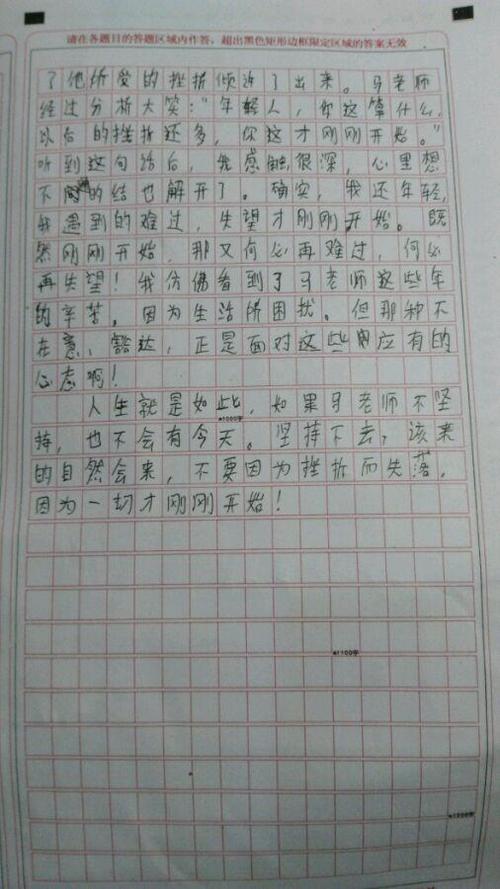 请在各题目的答题区域内作答，超出黑色矩形边框限定区域的答案无效
了他所受的挫折倾诉了出来。马老师
经过分析大笑：“年轻人，你这算什么，
以后的挫折还多，你这才刚刚开始。”
听到这句话后，我感触很深，心里想
不的结也解开了。确实，我还年轻，
我遇到的难过，失望才刚刚开始。既
然刚刚开始，那又何必再难过，何必
再失望！我仿佛看到了马老师这些年
的辛苦。因为生活所困扰。但那种不
在意、豁达，正是面对这些应有的
心态啊！
人生就是如此，如果马老师不坚
▲1000字
持，也不会有今天。坚持下去，该来
的自然会来，不要因为挫折而失落，
因为一切才刚刚开始！
▲1100字
▲1200字